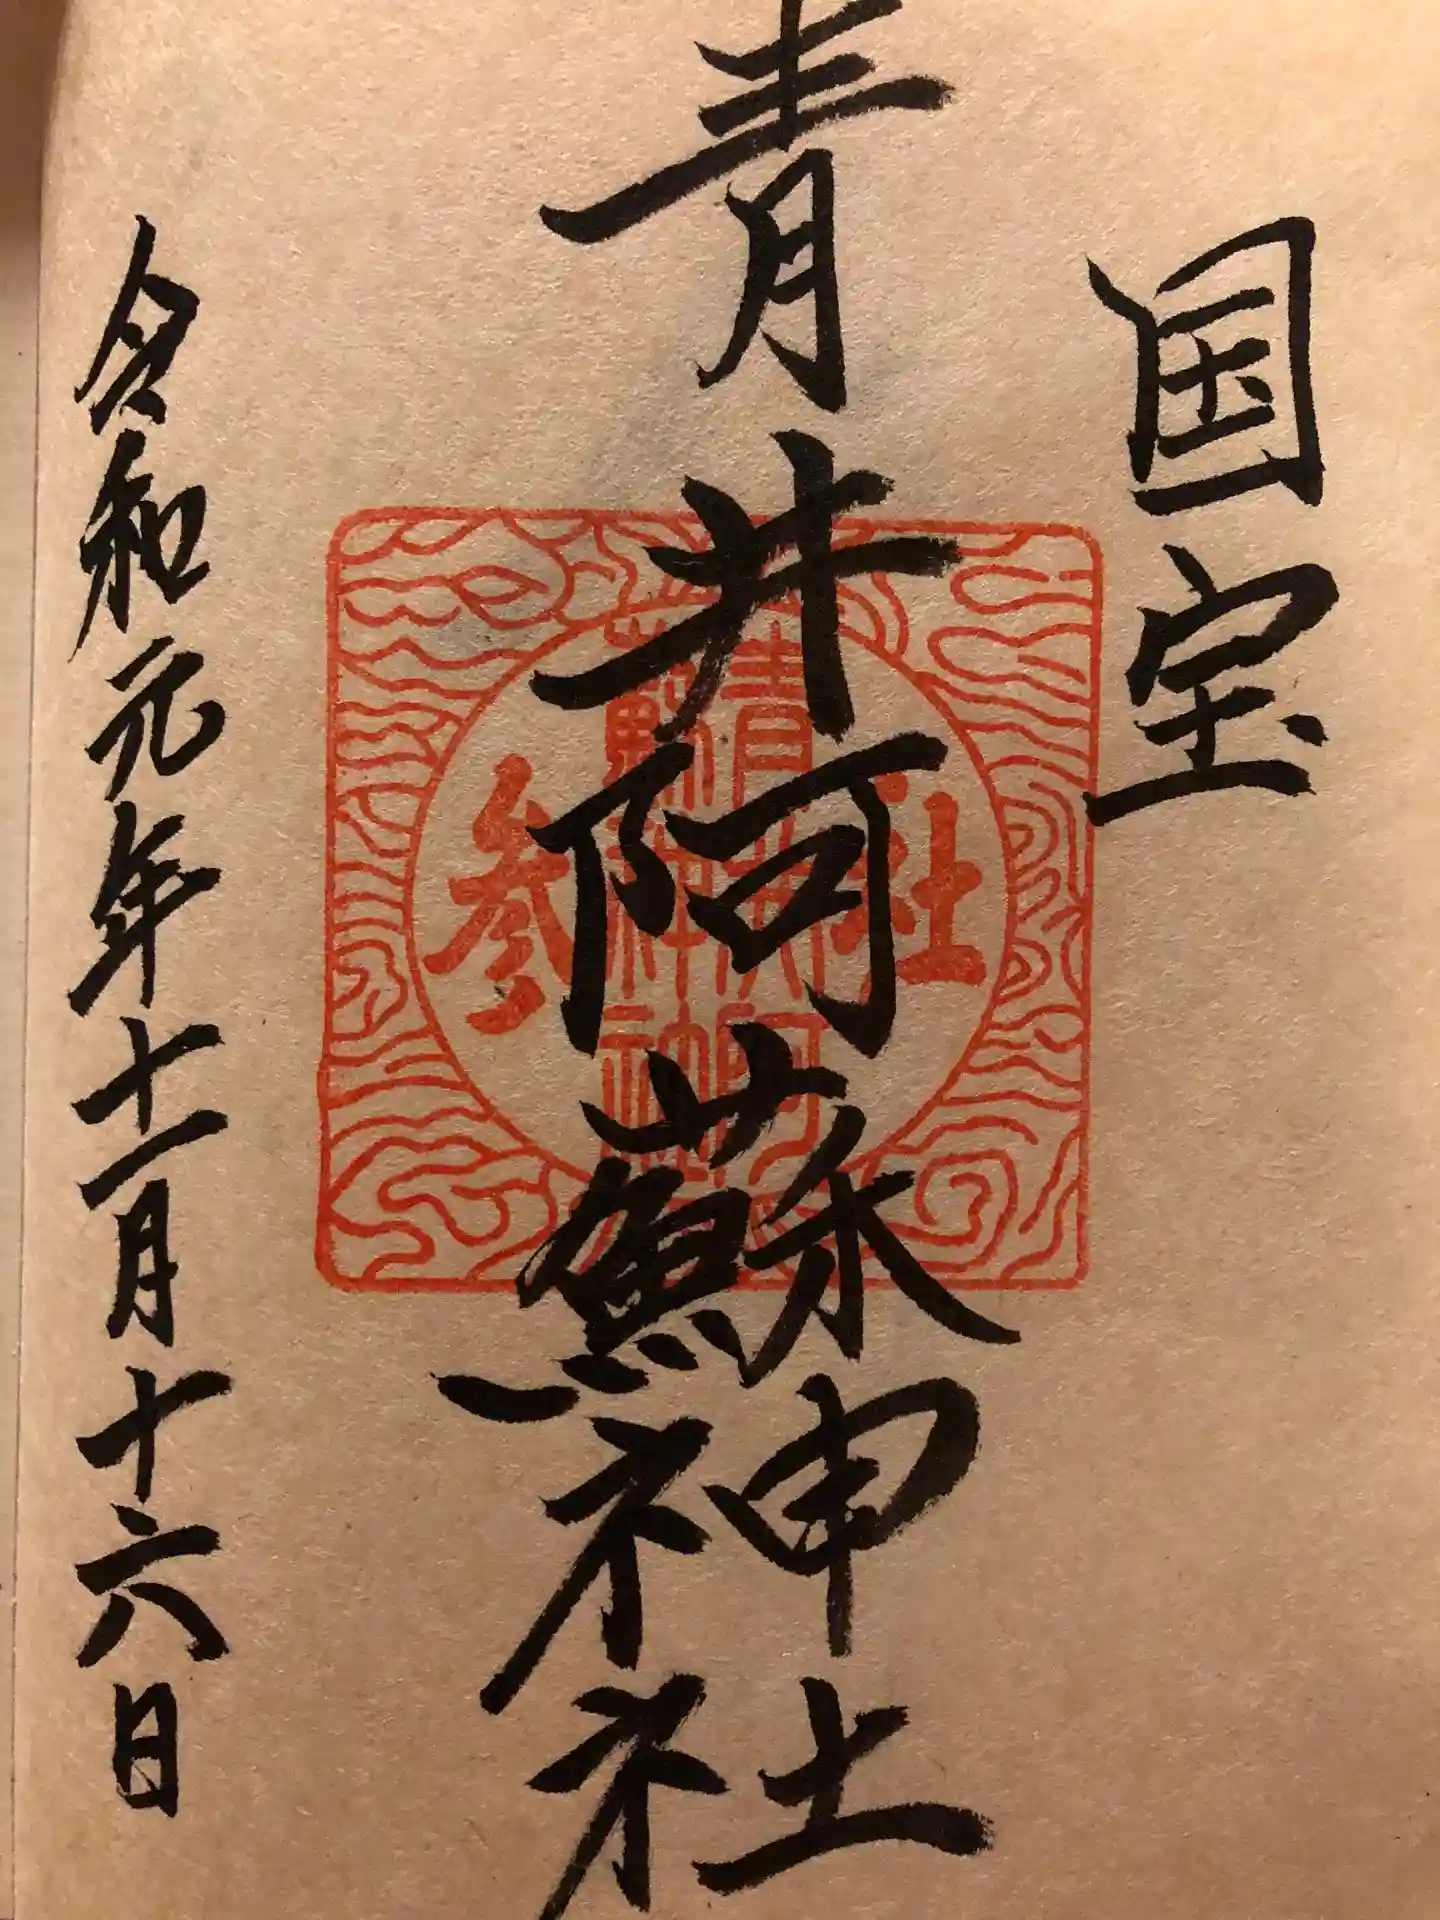 国宝
青井阿蘇神社
社参
青井阿
蘇神社
令和元年十一月十六日